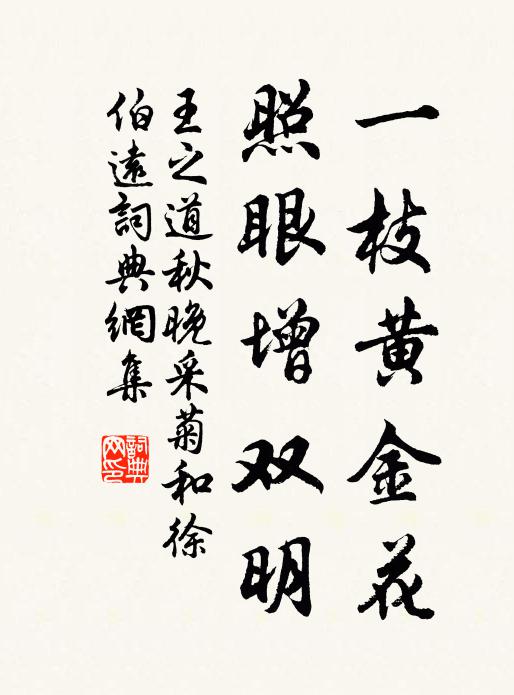 一枝黄金花
照眼增双明
王之道秋晚采菊和徐
伯遠詞典網集
詞典网印